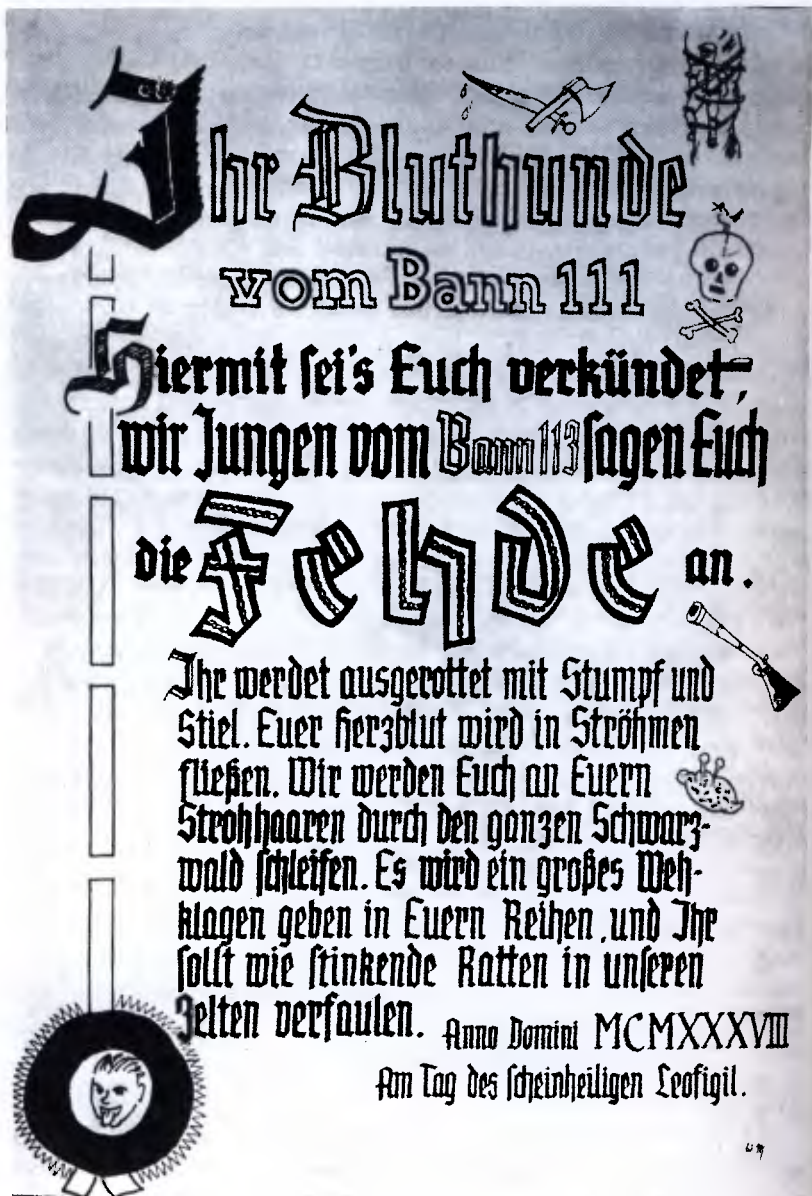 Ihr Bluthunde
vom Bann 111
Hiermit sei's Euch verkündet,
wir Jungen vom Bann 113 sagen Euch
die Fehde an.
Ihr werdet ausgerottet mit Stumpf und
Stiel. Euer Herzblut wird in Ströhmen
fließen. Wir werden Euch an Euern
Strohhaaren durch den ganzen Schwarz-
wald schleifen. Es wird ein großes Weh-
klagen geben in Euern Reihen, und Ihr
sollt wie stinkende Ratten in unseren
Zelten verfaulen.
Anno Domini MCMXXXVIII
Am Tag des scheinheiligen Leofigil.